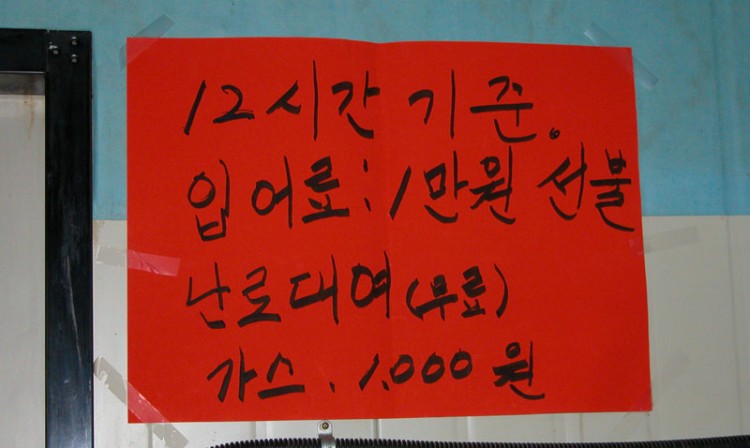 12시간 기준.
입어료: 1만원 선불
난로대여(무료)
가스. 1.000원